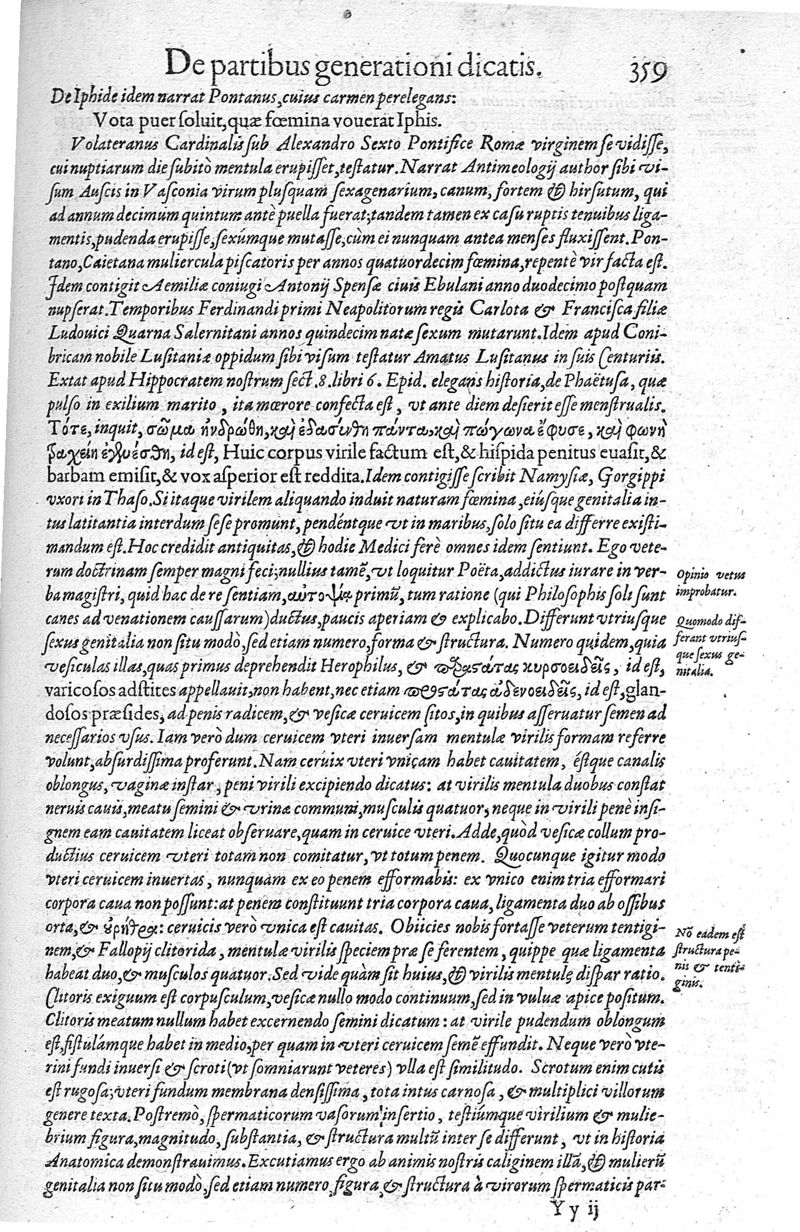 De partibus generationi dicatis. 359
De Iphide idem narrat Pontanus, cuius carmen perelegans:
Vota puer soluit, quæ fœmina vouerat Iphis.
Volateranus Cardinalis sub Alexandro Sexto Pontifice Romæ virginem se vidisse,
cui nuptiarum die subitò mentula erupisset, testatur. Narrat Antimeologij author sibi vi-
sum Auscis in Vasconia virum plusquam sexagenarium, canum, fortem & hirsutum, qui
ad annum decimum quintum antè puella fuerat; tandem tamen ex casu ruptis tenuibus liga-
mentis, pudenda erupisse, sexúmque mutasse, cùm ei nunquam antea menses fluxissent. Pon-
tano, Caietana muliercula piscatoris per annos quatuordecim fœmina, repentè vir facta est.
Idem contigit Aemiliæ coniugi Antonij Spensæ ciuis Ebulani anno duodecimo postquam
nupserat. Temporibus Ferdinandi primi Neapolitorum regis Carlota & Francisca filiæ
Ludouici Quarna Salernitani annos quindecim natæ sexum mutarunt. Idem apud Coni-
bricam nobile Lusitaniæ oppidum sibi visum testatur Amatus Lusitanus in suis Centuriis.
Extat apud Hippocratem nostrum sect. 8. libri 6. Epid. elegans historia, de Phaëtusa, quæ
pulso in exilium marito, ita mœrore confecta est, vt ante diem desierit esse menstrualis.
Τότε, inquit, σῶμα ἠνδρώθη, καὶ ἐδασύνθη πάντα, καὶ πώγωνα ἔφυσε, καὶ φωνὴ
τραχείη ἐγενέσθη, id est, Huic corpus virile factum est, & hispida penitus euasit, &
barbam emisit, & vox asperior est reddita. Idem contigisse scribit Namysiæ, Gorgippi
vxori in Thaso. Si itaque virilem aliquando induit naturam fœmina, eiúsque genitalia in-
tus latitantia interdum sese promunt, pendéntque vt in maribus, solo situ ea differre existi-
mandum est. Hoc credidit antiquitas, & hodie Medici ferè omnes idem sentiunt. Ego vete-
rum doctrinam semper magni feci; nullius tamē, vt loquitur Poëta, addictus iurare in ver-
ba magistri, quid hac de re sentiam, primū, tum ratione (qui Philosophis soli sunt
canes ad venationem caussarum) ductus, paucis aperiam & explicabo. Differunt vtriusque
sexus genitalia non situ modò, sed etiam numero, forma & structura. Numero quidem, quia
vesiculas illas, quas primus deprehendit Herophilus, & προστάτας κυρσοειδεῖς, id est,
varicosos adstites appellauit, non habent, nec etiam προστάτας ἀδενοειδεῖς, id est, glan-
dosos præsides, ad penis radicem, & vesicæ ceruicem sitos, in quibus asseruatur semen ad
necessarios vsus. Iam verò dum ceruicem vteri inuersam mentulæ virilis formam referre
volunt, absurdissima proferunt. Nam ceruix vteri vnicam habet cauitatem, éstque canalis
oblongus, vaginæ instar, peni virili excipiendo dicatus: at virilis mentula duobus constat
neruis cauis, meatu semini & vrinæ communi, musculis quatuor, neque in virili penè insi-
gnem eam cauitatem liceat obseruare, quam in ceruice vteri. Adde, quòd vesicæ collum pro-
ductius ceruicem vteri totam non comitatur, vt totum penem. Quocunque igitur modo
vteri ceruicem inuertas, nunquam ex eo penem efformabis: ex vnico enim tria efformari
corpora caua non possunt: at penem constituunt tria corpora caua, ligamenta duo ab ossibus
orta, & οὐρήθρα: ceruicis verò vnica est cauitas. Obiicies nobis fortasse veterum tentigi-
nem, & Fallopij clitorida, mentulæ virilis speciem præ se ferentem, quippe quæ ligamenta
habeat duo, & musculos quatuor. Sed vide quàm sit huius, & virilis mentulę dispar ratio.
Clitoris exiguum est corpusculum, vesicæ nullo modo continuum, sed in vuluæ apice positum.
Clitoris meatum nullum habet excernendo semini dicatum: at virile pudendum oblongum
est, fistulámque habet in medio, per quam in vteri ceruicem semē effundit. Neque verò vte-
rini fundi inuersi & scroti (vt somniarunt veteres) vlla est similitudo. Scrotum enim cutis
est rugosa; vteri fundum membrana densissima, tota intus carnosa, & multiplici villorum
genere texta. Postremò, spermaticorum vasorum insertio, testiúmque virilium & mulie-
brium figura, magnitudo, substantia, & structura multū inter se differunt, vt in historia
Anatomica demonstrauimus. Excutiamus ergo ab animis nostris caliginem illā, & mulierū
genitalia non situ modò, sed etiam numero, figura, & structura à virorum spermaticis par-
Y y ij
Opinio vetus
improbatur.
Quomodo dif-
ferant vtrius-
que sexus ge-
nitalia.
Nō eadem est
structura pe-
nis & tenti-
ginis.